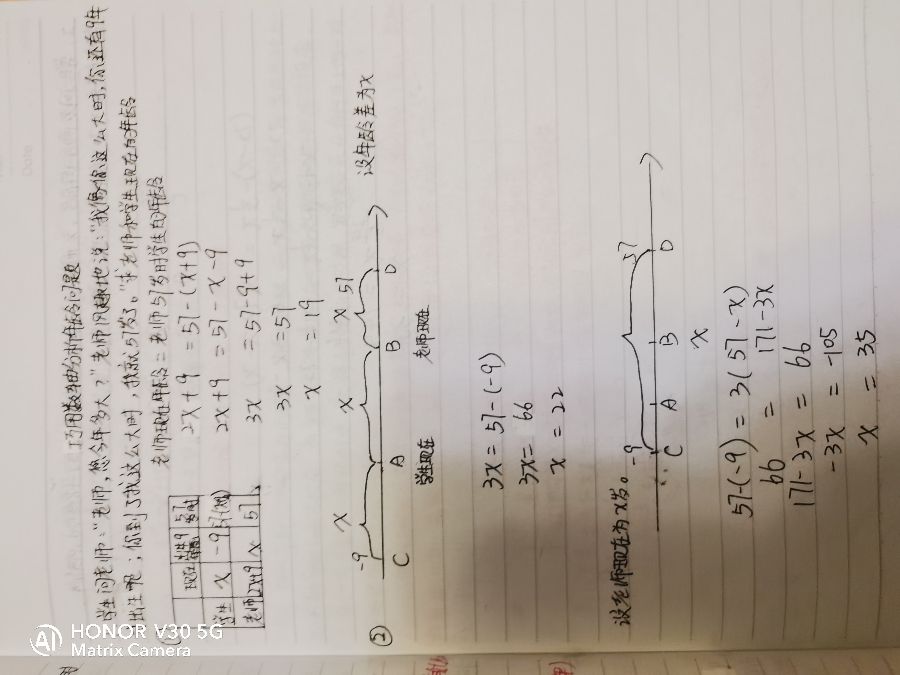 巧用数轴分析年龄问题
学生问老师:"老师,您今年多大?"老师风趣地说:"我像你这么大时,你还有9年
出生呢;你到了我这么大时,我就57岁了。"求老师和学生现在的年龄
老师现在年龄=老师57岁时学生的年龄
现在 57岁时
学生 x -9
老师 2x+9 x 57
2x+9 =57-(x+9)
2x+9 =57-x-9
3x =57-9+9
3x =57
x =19
② 设年龄差为x
-9 x x x 57
C A B D
学生现在 老师现在
3x=57-(-9)
3x= 66
x =22
设老师现在为x岁。
-9 57
C A B D
x
57-(-9) = 3(57-x)
66 = 171-3x
171-3x = 66
-3x = -105
x = 35
HONOR V30 5G
Matrix Camera